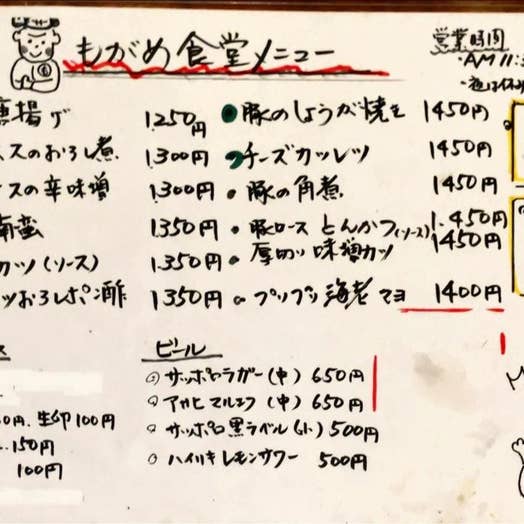 もがめ食堂メニュー
営業時間
・AM 11:3
・夜は休み
唐揚げ 1.250円
スのおろし煮 1.300円
スの辛味噌 1.300円
南蛮 1.350円
カツ(ソース) 1.350円
ツおろしポン酢 1350円
豚のしょうが焼き 1450円
チーズカツレツ 1450円
豚の角煮 1450円
豚ロースとんかつ(ソース) 1.450円
厚切り味噌カツ 1450円
プリプリ海老マヨ 1400円
ス
0円. 生卵 100円
150円
100円
ビール
サッポロラガー(中) 650円
アサヒマルエフ(中) 650円
サッポロ黒ラベル(小) 500円
ハイリキレモンサワー 500円